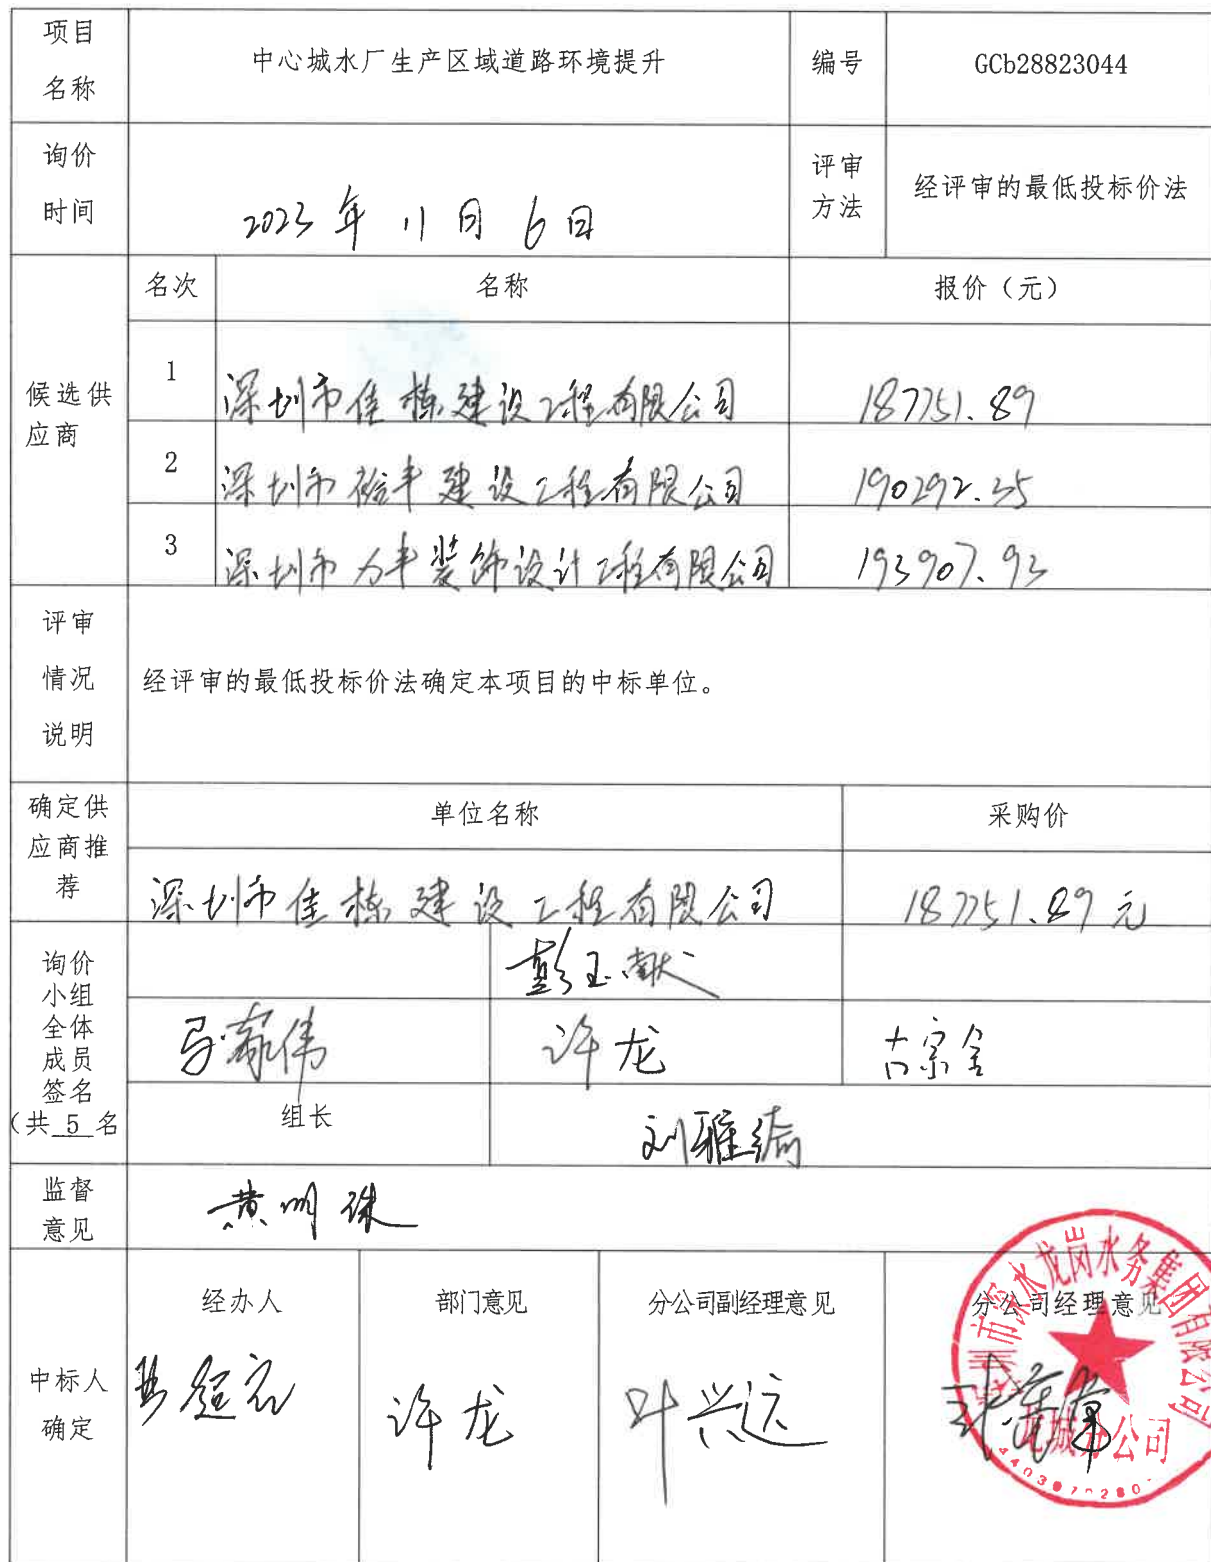 项目
名称
中心城水厂生产区域道路环境提升
编号
GCb28823044
询价
时间
2023年11月6日
评审
方法
经评审的最低投标价法
候选供
应商
名次
名称
报价（元）
1
深圳市佳栋建设工程有限公司
187751.89
2
深圳市裕丰建设工程有限公司
190292.35
3
深圳市力丰装饰设计工程有限公司
193907.93
评审
情况
说明
经评审的最低投标价法确定本项目的中标单位。
确定供
应商推
荐
单位名称
采购价
深圳市佳栋建设工程有限公司
187751.89元
询价
小组
全体
成员
签名
（共 5 名
彭玉献
许龙
古宗全
组长
监督
意见
黄明珠
中标人
确定
经办人
部门意见
许龙
分公司副经理意见
叶兴远
分公司经理意见
圳市深水龙岗水务集团有限公司
龙城分公司